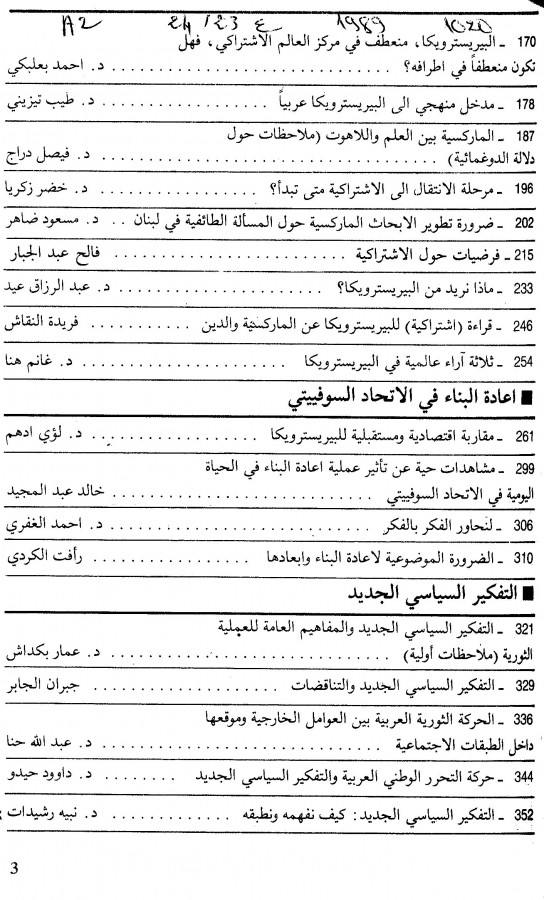 A2 24/23 ع 1989 1020
170 ـ البيريسترويكا، منعطف في مركز العالم الاشتراكي، فهل
تكون منعطفاً في اطرافه؟ . . . . . . . . . . . . . . . . . . . د. احمد بعلبكي
178 ـ مدخل منهجي الى البيريسترويكا عربياً . . . . . . . . د. طيب تيزيني
187 ـ الماركسية بين العلم واللاهوت (ملاحظات حول
دلالة الدوغمائية) . . . . . . . . . . . . . . . . . . . . . . د. فيصل دراج
196 ـ مرحلة الانتقال الى الاشتراكية متى تبدأ؟ . . . . . . . د. خضر زكريا
202 ـ ضرورة تطوير الابحاث الماركسية حول المسألة الطائفية في لبنان . . د. مسعود ضاهر
215 ـ فرضيات حول الاشتراكية . . . . . . . . . . . . . . . . فالح عبد الجبار
233 ـ ماذا نريد من البيريسترويكا؟ . . . . . . . . . . . . . . د. عبد الرزاق عيد
246 ـ قراءة (اشتراكية) للبيريسترويكا عن الماركسية والدين . . . . . . . . فريدة النقاش
254 ـ ثلاثة آراء عالمية في البيريسترويكا . . . . . . . . . . . د. غانم هنا
■ اعادة البناء في الاتحاد السوفييتي
261 ـ مقاربة اقتصادية ومستقبلية للبيريسترويكا . . . . . . . . د. لؤي ادهم
299 ـ مشاهدات حية عن تأثير عملية اعادة البناء في الحياة
اليومية في الاتحاد السوفييتي . . . . . . . . . . . . . . . خالد عبد المجيد
306 ـ لنحاور الفكر بالفكر . . . . . . . . . . . . . . . . . . د. احمد الغفري
310 ـ الضرورة الموضوعية لاعادة البناء وابعادها . . . . . . . . رأفت الكردي
■ التفكير السياسي الجديد
321 ـ التفكير السياسي الجديد والمفاهيم العامة للعملية
الثورية (ملاحظات أولية) . . . . . . . . . . . . . . . . . . د. عمار بكداش
329 ـ التفكير السياسي الجديد والتناقضات . . . . . . . . . . جبران الجابر
336 ـ الحركة الثورية العربية بين العوامل الخارجية وموقعها
داخل الطبقات الاجتماعية . . . . . . . . . . . . . . . . . . د. عبد الله حنا
344 ـ حركة التحرر الوطني العربية والتفكير السياسي الجديد . . . . . . . . د. داوود حيدو
352 ـ التفكير السياسي الجديد: كيف نفهمه ونطبقه . . . . . . . . د. نبيه رشيدات
3